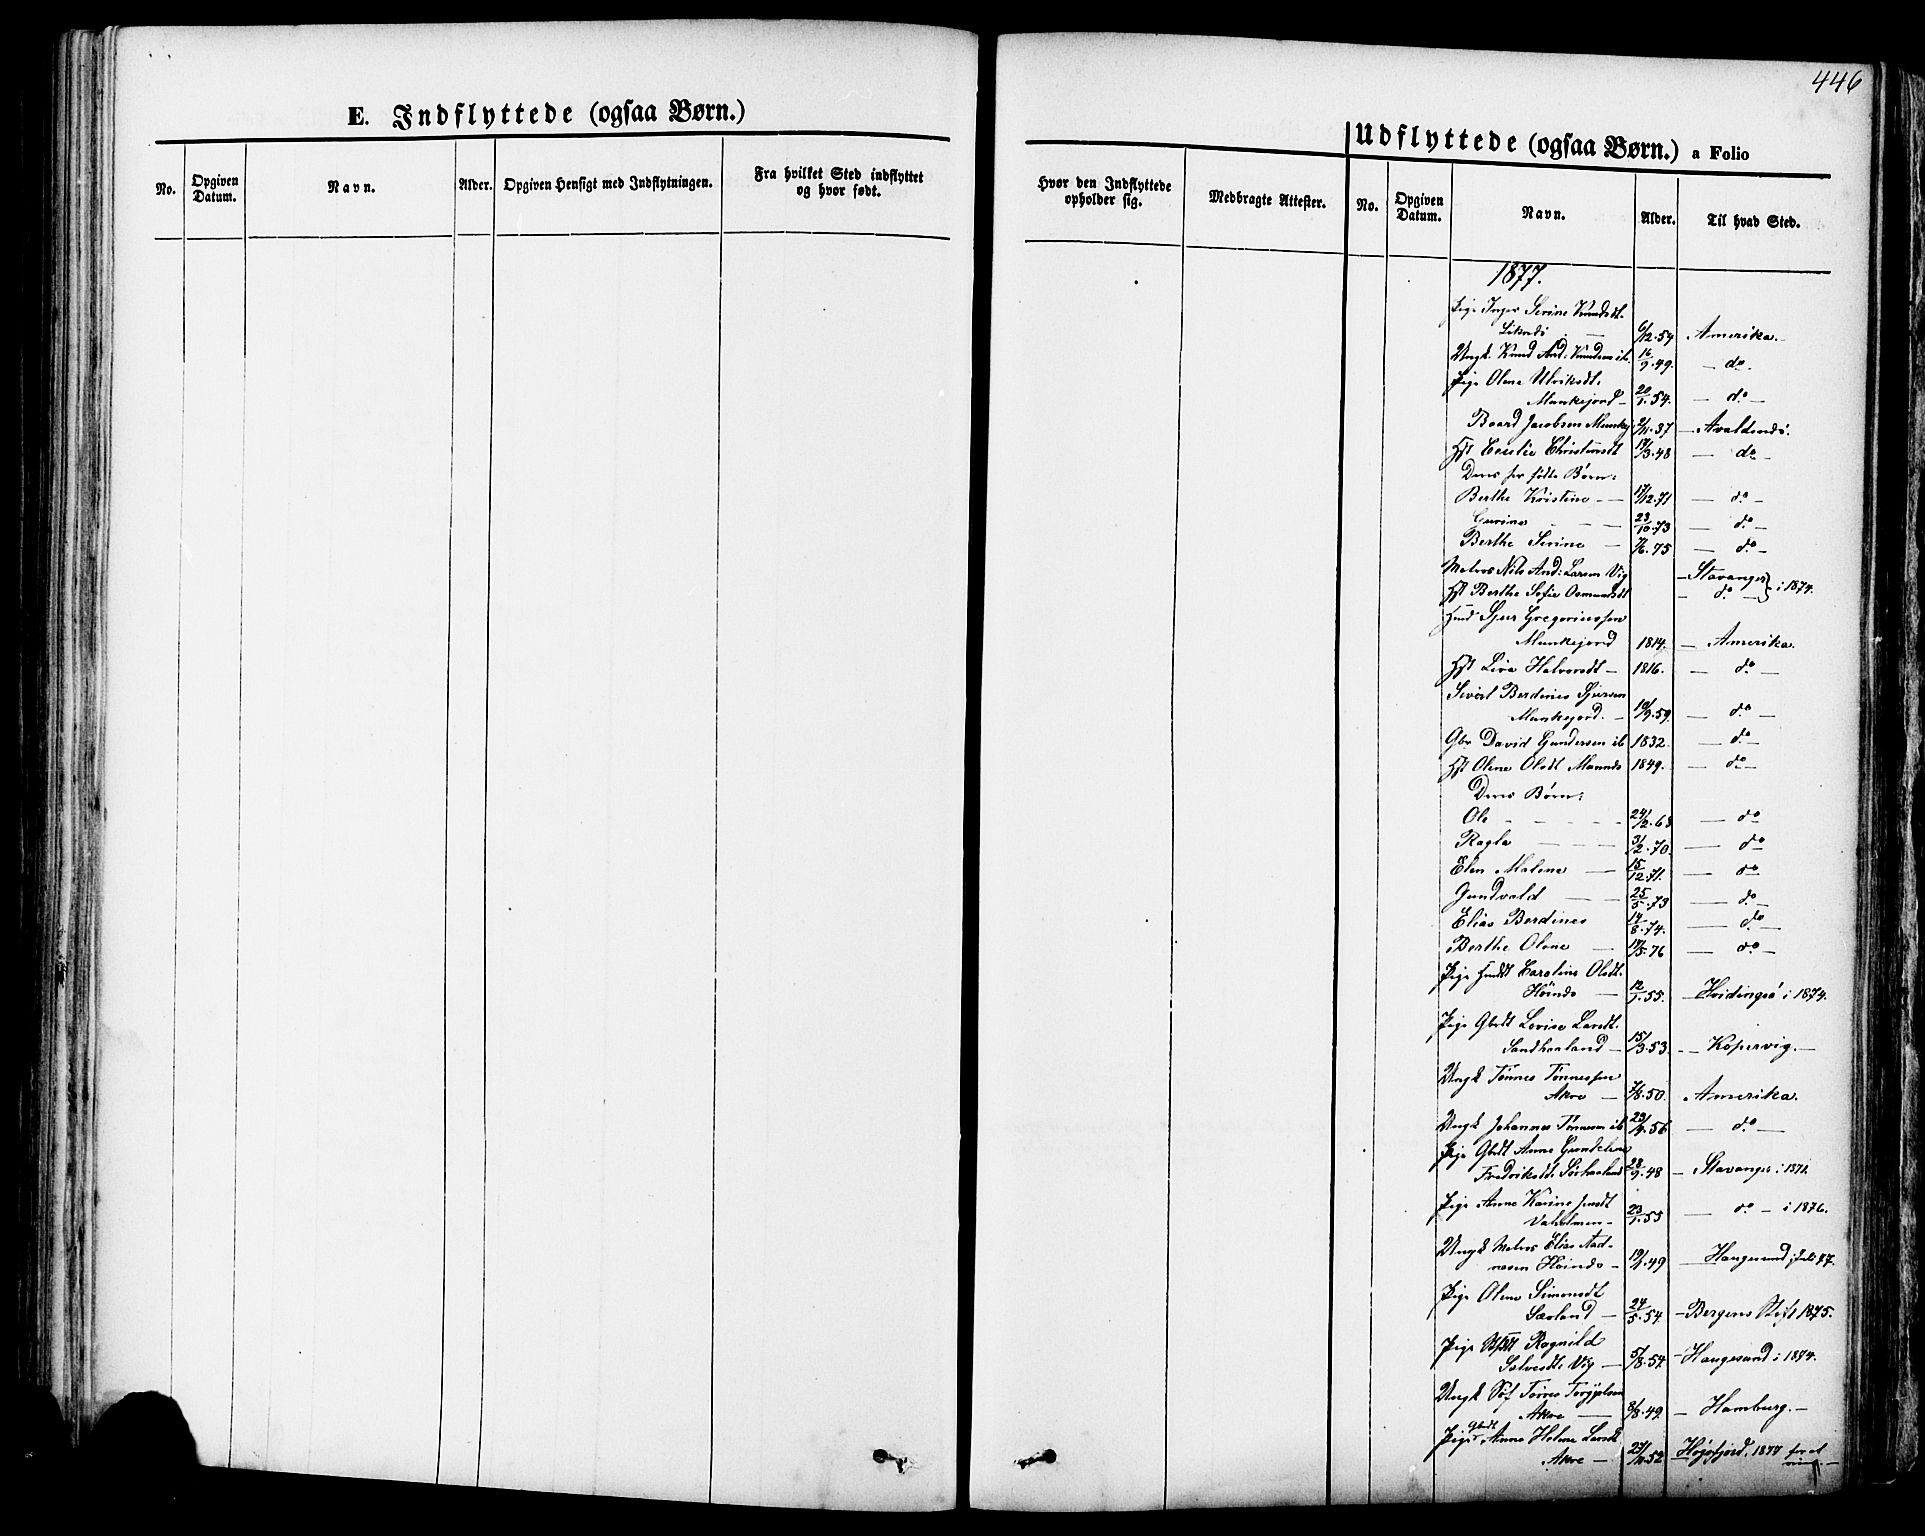 446
E. Indflyttede (ogsaa Børn.)
No.
Opgiven Datum.
Navn.
Alder.
Opgiven Hensigt med Indflytningen.
Fra hvilket Sted indflyttet
og hvor født.
Udflyttede (ogsaa Børn.) a Folio
Hvor den Indflyttede
opholder sig.
Medbragte Attester.
No.
Opgiven Datum.
Navn.
Alder.
Til hvad Sted.
1877.
Pige Inger Serine Knudsdt.
6/12.54 Amerika.
Ungk. Knud And: Knudsen ib. 16/9.49. — do.
Pige Olene Ulriksdt.
Munkejord — 20/1.54. — do —
Baard Jacobsen Munkej 2/11.37 — Avaldsnds.
Hst Cecilie Christensdt 17/3.48 — do —
Deres før fødte Børn:
Berthe Kristine — 17/12.71 — do —
Gurine — 23/10.73 — do —
Berthe Serine — 7/6.75 — do —
Matros Nils And: Larsen Vig — Stavanger } i 1874.
Hst Berthe Sofie Osmundsdt — do —
Sjur Gregoriussen
Munkejord 1814. — Amerika.
Hst Liva Halvorsdt — 1816. — do —
Sivert Berdines Sjursen
Munkejord. — 10/9.59. — do —
Gbr David Gundersen ib 1832. — do —
Hst Olene Olsdt 1849. — do —
Deres Børn:
Ole — 24/2.68 — do
Ragla — 3/2.70. — do
Elen Malene — 15/12.71. — do
Gundvald — 25/5.73 — do —
Elias Berdines 14/8.74. — do —
Berthe Olene — 17/5.76 — do —
Pige Caroline Olsdt.
Höinds — 12/1.55. — Hvidingsö i 1874.
Pige Gbdt Lovise Larsdt.
Sandhaaland — 15/3.53. — Kopervig. —
Ungk Tönnes Tönnessen
Akre — 7/8.50. Amerika.
Ungk Johannes Tönnesen ib 29/4.56 — do —
Pige Gbdt Anne
Fredriksdt. Sörhaaland 28/9.48 — Stavanger i 1871.
Pige Anne Karine
23/1.55 — do — i 1876.
Ungk Matros Elias Aad-
nesen Höinds — 19/1.49 — Haugesund i Juli 77.
Pige Olene Simonsdt
Sævland — 24/5.54. — Bergens Stift 1875.
Pige Ragnild
Salvesdt. Vig — 5/8.54. — Haugesund i 1874.
Ungk Söf. Tönnes
Akre — 8/8.49. — Hamburg. —
Pige Gbdt Anne Helene Larsdt
Akre — 23/11.52 — Högsfjord. 1877